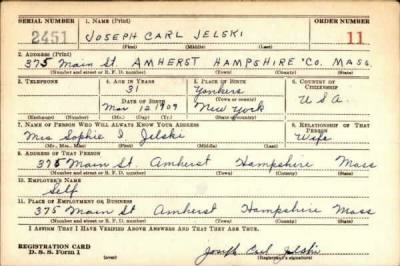 SERIAL NUMBER 1. NAME (Print) ORDER NUMBER
2451 JOSEPH CARL JELSKI 11
(First) (Middle) (Last)
2. ADDRESS (Print)
375 Main St. AMHERST HAMPSHIRE Co. MASS.
(Number and street or R. F. D. number) (Town) (County) (State)
3. TELEPHONE 4. AGE IN YEARS 5. PLACE OF BIRTH 6. COUNTRY OF CITIZENSHIP
31 Yonkers
DATE OF BIRTH (Town or county)
Mar 12 1909 New York U S A
(Exchange) (Number) (Mo.) (Day) (Yr.) (State or country)
7. NAME OF PERSON WHO WILL ALWAYS KNOW YOUR ADDRESS 8. RELATIONSHIP OF THAT PERSON
Mrs Sophie I. Jelski Wife
(Mr., Mrs., Miss) (First) (Middle) (Last)
9. ADDRESS OF THAT PERSON
375 Main St. Amherst Hampshire Mass
(Number and street or R. F. D. number) (Town) (County) (State)
10. EMPLOYER'S NAME
Self
11. PLACE OF EMPLOYMENT OR BUSINESS
375 Main St Amherst Hampshire Mass
(Number and street or R. F. D. number) (Town) (County) (State)
I AFFIRM THAT I HAVE VERIFIED ABOVE ANSWERS AND THAT THEY ARE TRUE.
REGISTRATION CARD
D. S. S. Form 1 (over) Joseph Carl Jelski
(Registrant's signature)